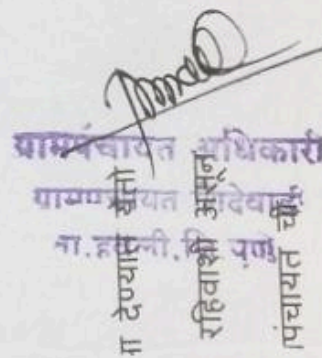 ग्रामपंचायत अधिकारी
ग्रामपंचायत
ता. हवेली. जि. पुणे
ा देण्यात येतो
रहिवाशी असून
पंचायत चौ.